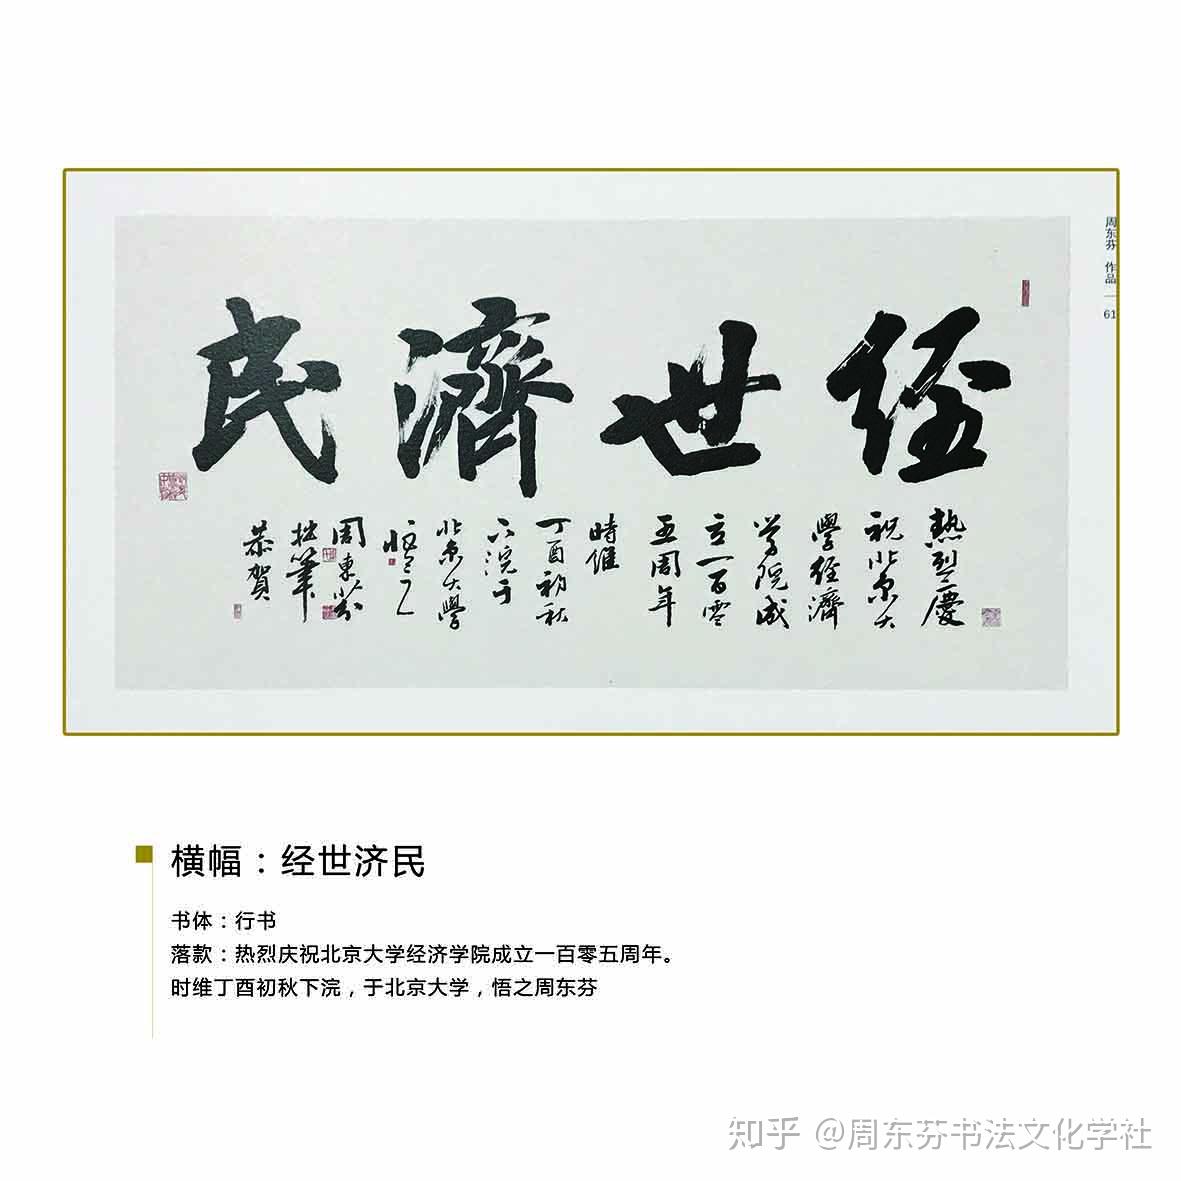 周东芬 作品 61
經世濟民
熱烈慶
祝北京大
學經濟
学院成
立一百零
五周年
時維
丁酉初秋
下浣于
北京大學
悟之
周東芬
拙筆
恭賀
横幅：经世济民
书体：行书
落款：热烈庆祝北京大学经济学院成立一百零五周年。
时维丁酉初秋下浣，于北京大学，悟之周东芬
知乎 @周东芬书法文化学社